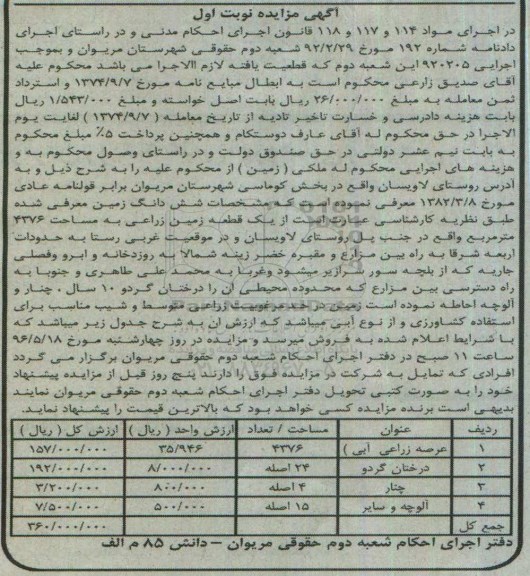 آگهی مزایده نوبت اول
در اجرای مواد ۱۱۴ و ۱۱۷ و ۱۱۸ قانون اجرای احکام مدنی و در راستای اجرای
دادنامه شماره ۱۹۲ مورخ ۹۲/۲/۲۹ شعبه دوم حقوقی شهرستان مریوان و بموجب
اجرایی ۹۲۰۲۰۵ این شعبه دوم که قطعیت یافته لازم الاجرا می باشد محکوم علیه
آقای صدیق زارعی محکوم است به ابطال مبایع نامه مورخ ۱۳۷۴/۹/۷ و استرداد
ثمن معامله به مبلغ ۲۶/۰۰۰/۰۰۰ ریال بابت اصل خواسته و مبلغ ۱/۵۴۳/۰۰۰ ریال
بابت هزینه دادرسی و خسارت تاخیر تادیه از تاریخ معامله ( ۱۳۷۴/۹/۷ ) لغایت یوم
الاجرا در حق محکوم له آقای عارف دوستکام و همچنین پرداخت ۵٪ مبلغ محکوم
به بابت نیم عشر دولتی در حق صندوق دولت و در راستای وصول محکوم به و
هزینه های اجرایی محکوم له ملکی ( زمین ) از محکوم علیه را به شرح ذیل و به
آدرس روستای لاویسان واقع در بخش کوماسی شهرستان مریوان برابر قولنامه عادی
مورخ ۱۳۸۲/۳/۸ معرفی نموده است که مشخصات شش دانگ زمین معرفی شده
طبق نظریه کارشناسی عبارت است از یک قطعه زمین زراعی به مساحت ۴۳۷۶
مترمربع واقع در جنب پل روستای لاویسان و در موقعیت غربی رستا به حدودات
اربعه شرقا به راه بین مزارع و مقبره خضر زینه شمالا به روزدخانه و ابرو وفصلی
جاریه که از بلچه سور سرازیر میشود وغربا به محمد علی طاهری و جنوبا به
راه دسترسی بین مزارع که محدوده محیطی آن را درختان گردو ۱۰ سال . چنار و
آلوچه احاطه نموده است زمین در حد مرغوبیت زراعی متوسط و شیب مناسب برای
استفاده کشاورزی و از نوع آبی میباشد که ارزش آن به شرح جدول زیر میباشد که
با شرایط اعلام شده به فروش میرسد و مزایده در روز چهارشنبه مورخ ۹۶/۵/۱۸
ساعت ۱۱ صبح در دفتر اجرای احکام شعبه دوم حقوقی مریوان برگزار می گردد
افرادی که تمایل به شرکت در مزایده فوق را دارند پنج روز قبل از مزایده پیشنهاد
خود را به صورت کتبی تحویل دفتر اجرای احکام شعبه دوم حقوقی مریوان نمایند
بدیهی است برنده مزایده کسی خواهد بود که بالاترین قیمت را پیشنهاد نماید.
ردیف عنوان مساحت / تعداد ارزش واحد ( ریال ) ارزش کل ( ریال )
۱ عرصه زراعی آبی ) ۴۳۷۶ ۳۵/۹۴۶ ۱۵۷/۰۰۰/۰۰۰
۲ درختان گردو ۲۴ اصله ۸/۰۰۰/۰۰۰ ۱۹۲/۰۰۰/۰۰۰
۳ چنار ۴ اصله ۸۰۰/۰۰۰ ۳/۲۰۰/۰۰۰
۴ آلوچه و سایر ۱۵ اصله ۵۰۰/۰۰۰ ۷/۵۰۰/۰۰۰
جمع کل ۳۶۰/۰۰۰/۰۰۰
دفتر اجرای احکام شعبه دوم حقوقی مریوان – دانش ۸۵ م الف